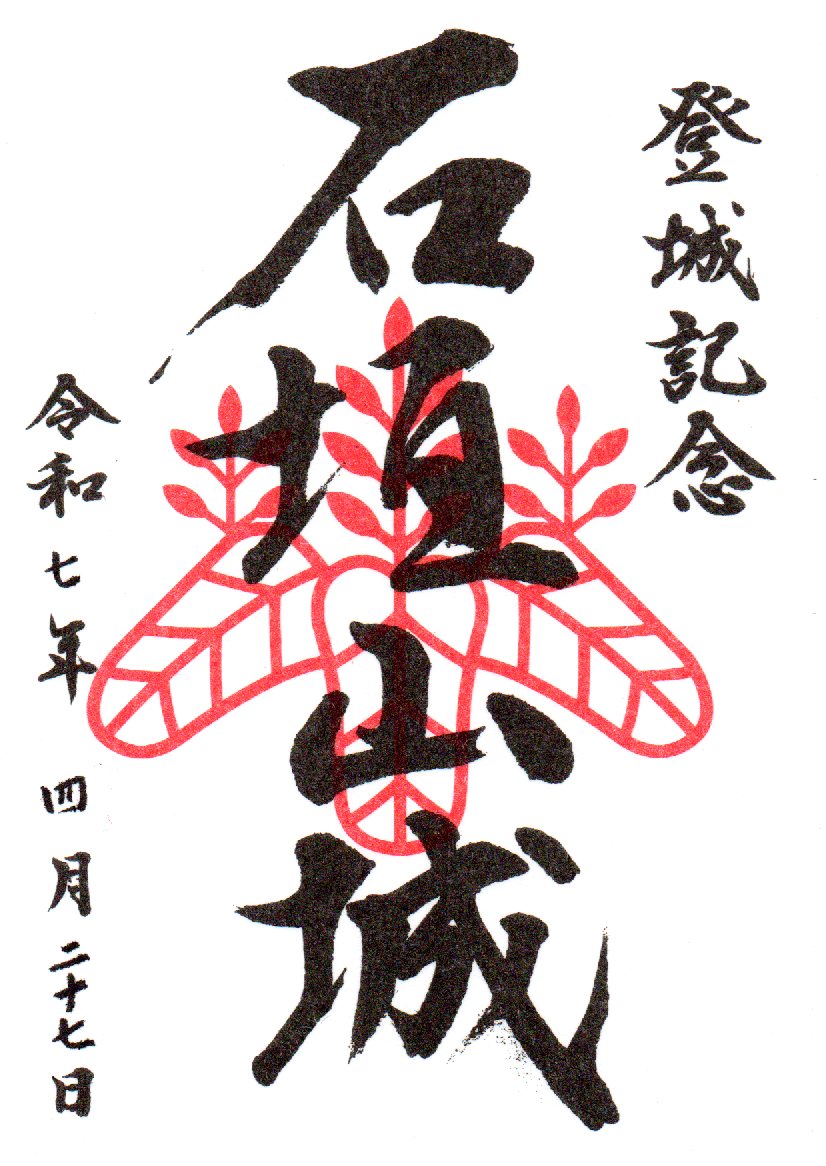 登城記念
石垣山城
令和七年四月二十七日